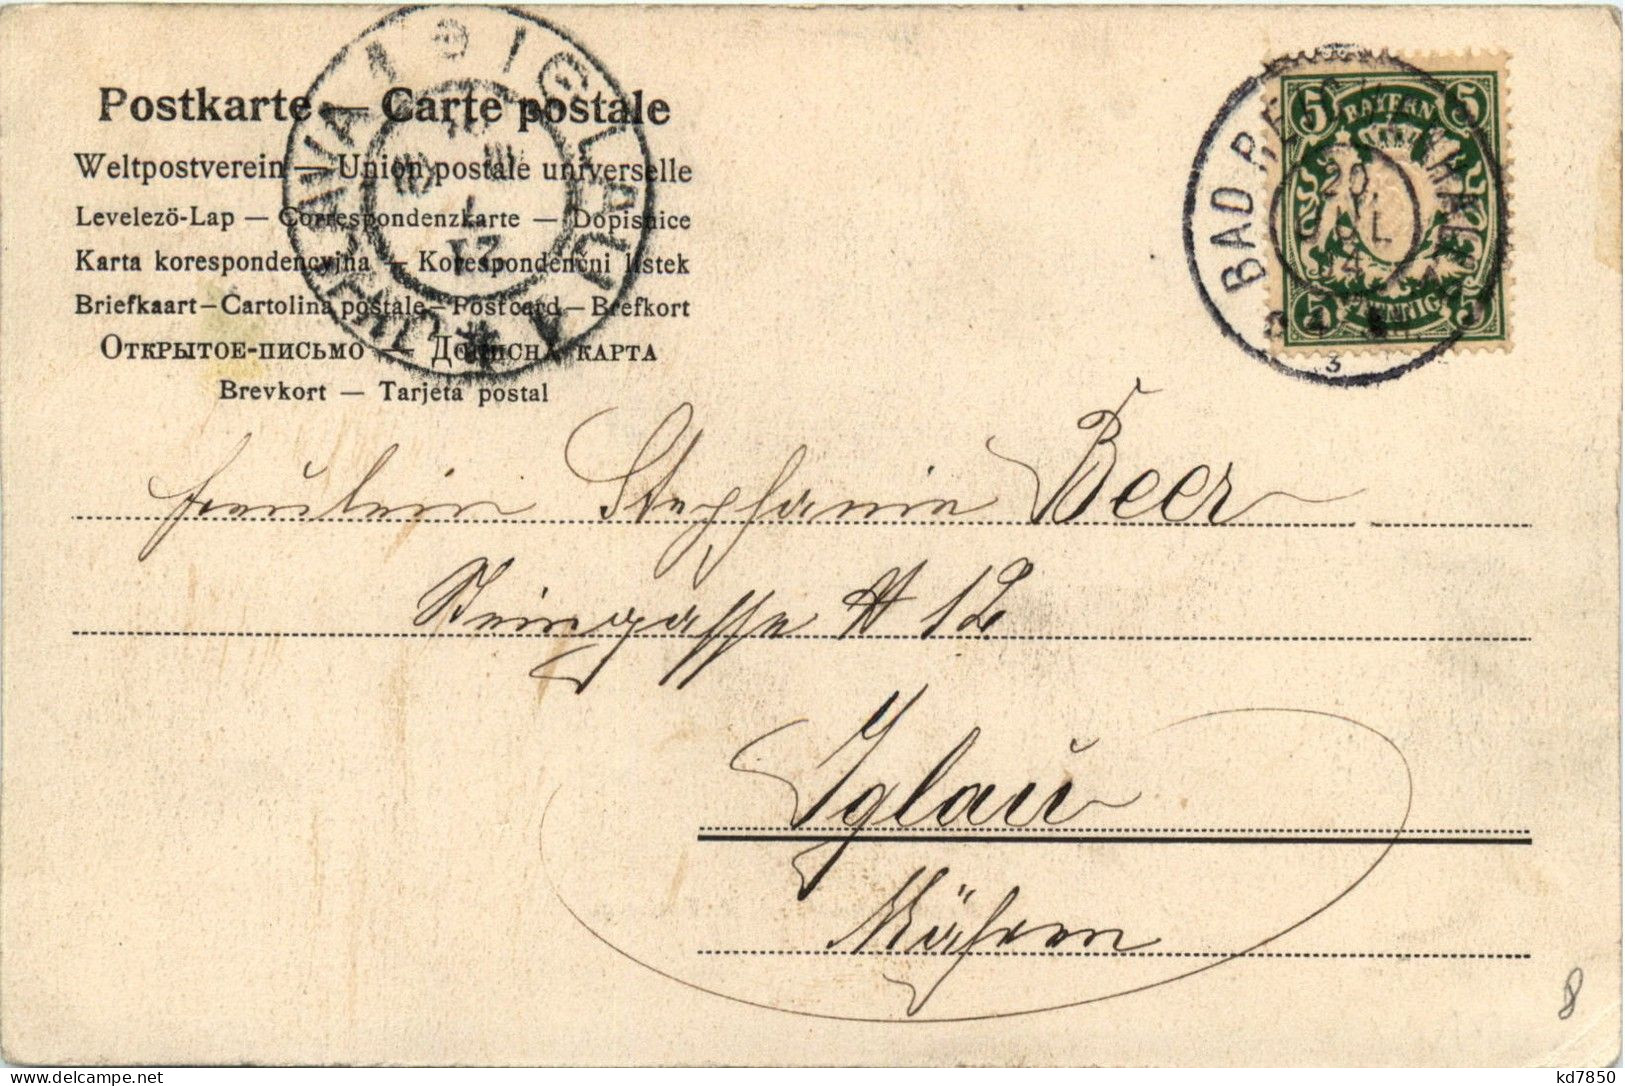 Postkarte — Carte postale
Weltpostverein — Union postale universelle
Levelezö-Lap — Correspondenzkarte — Dopisnice
Karta korespondencyjna — Korespondenční lístek
Briefkaart — Cartolina postale — Postcard — Brefkort
Открытое-письмо — Дописна карта
Brevkort — Tarjeta postal
IGLAU 1
JIHLAVA 1
21
BAD REICHENHALL
20.
JUL
04
3
5 BAYERN 5
5 PFENNIG 5
Fräulein Stephanie Beer
Steingasse # 12
Iglau
Mähren
8
kd7850